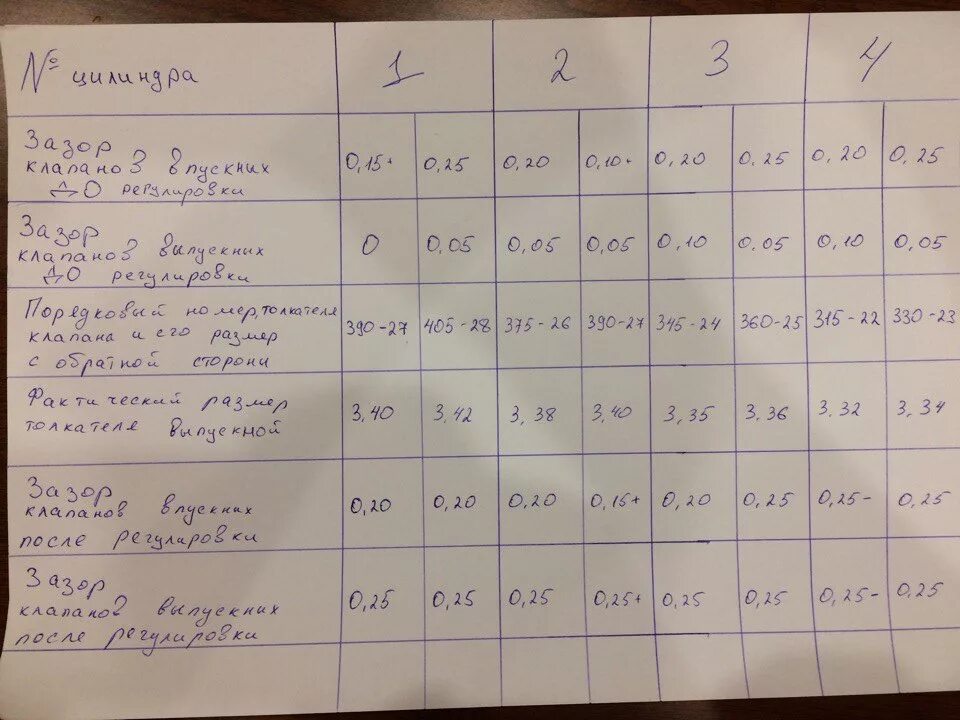 № цилиндра 1 2 3 4
Зазор
клапанов впускних 0,15+ 0,25 0,20 0,10+ 0,20 0,25 0,20 0,25
до регулировки
Зазор
клапанов выпускних 0 0,05 0,05 0,05 0,10 0,05 0,10 0,05
до регулировки
Порядковый номер, толкателя
клапана и его размер 390-27 405-28 375-26 390-27 345-24 360-25 315-22 330-23
с обратной сторони
Фактический размер
толкателя выпускной 3,40 3,42 3,38 3,40 3,35 3,36 3,32 3,34
Зазор
клапанов впускних 0,20 0,20 0,20 0,15+ 0,20 0,25 0,25- 0,25
после регулировки
Зазор
клапанов выпускних 0,25 0,25 0,25 0,25+ 0,25 0,25 0,25- 0,25
после регулировки